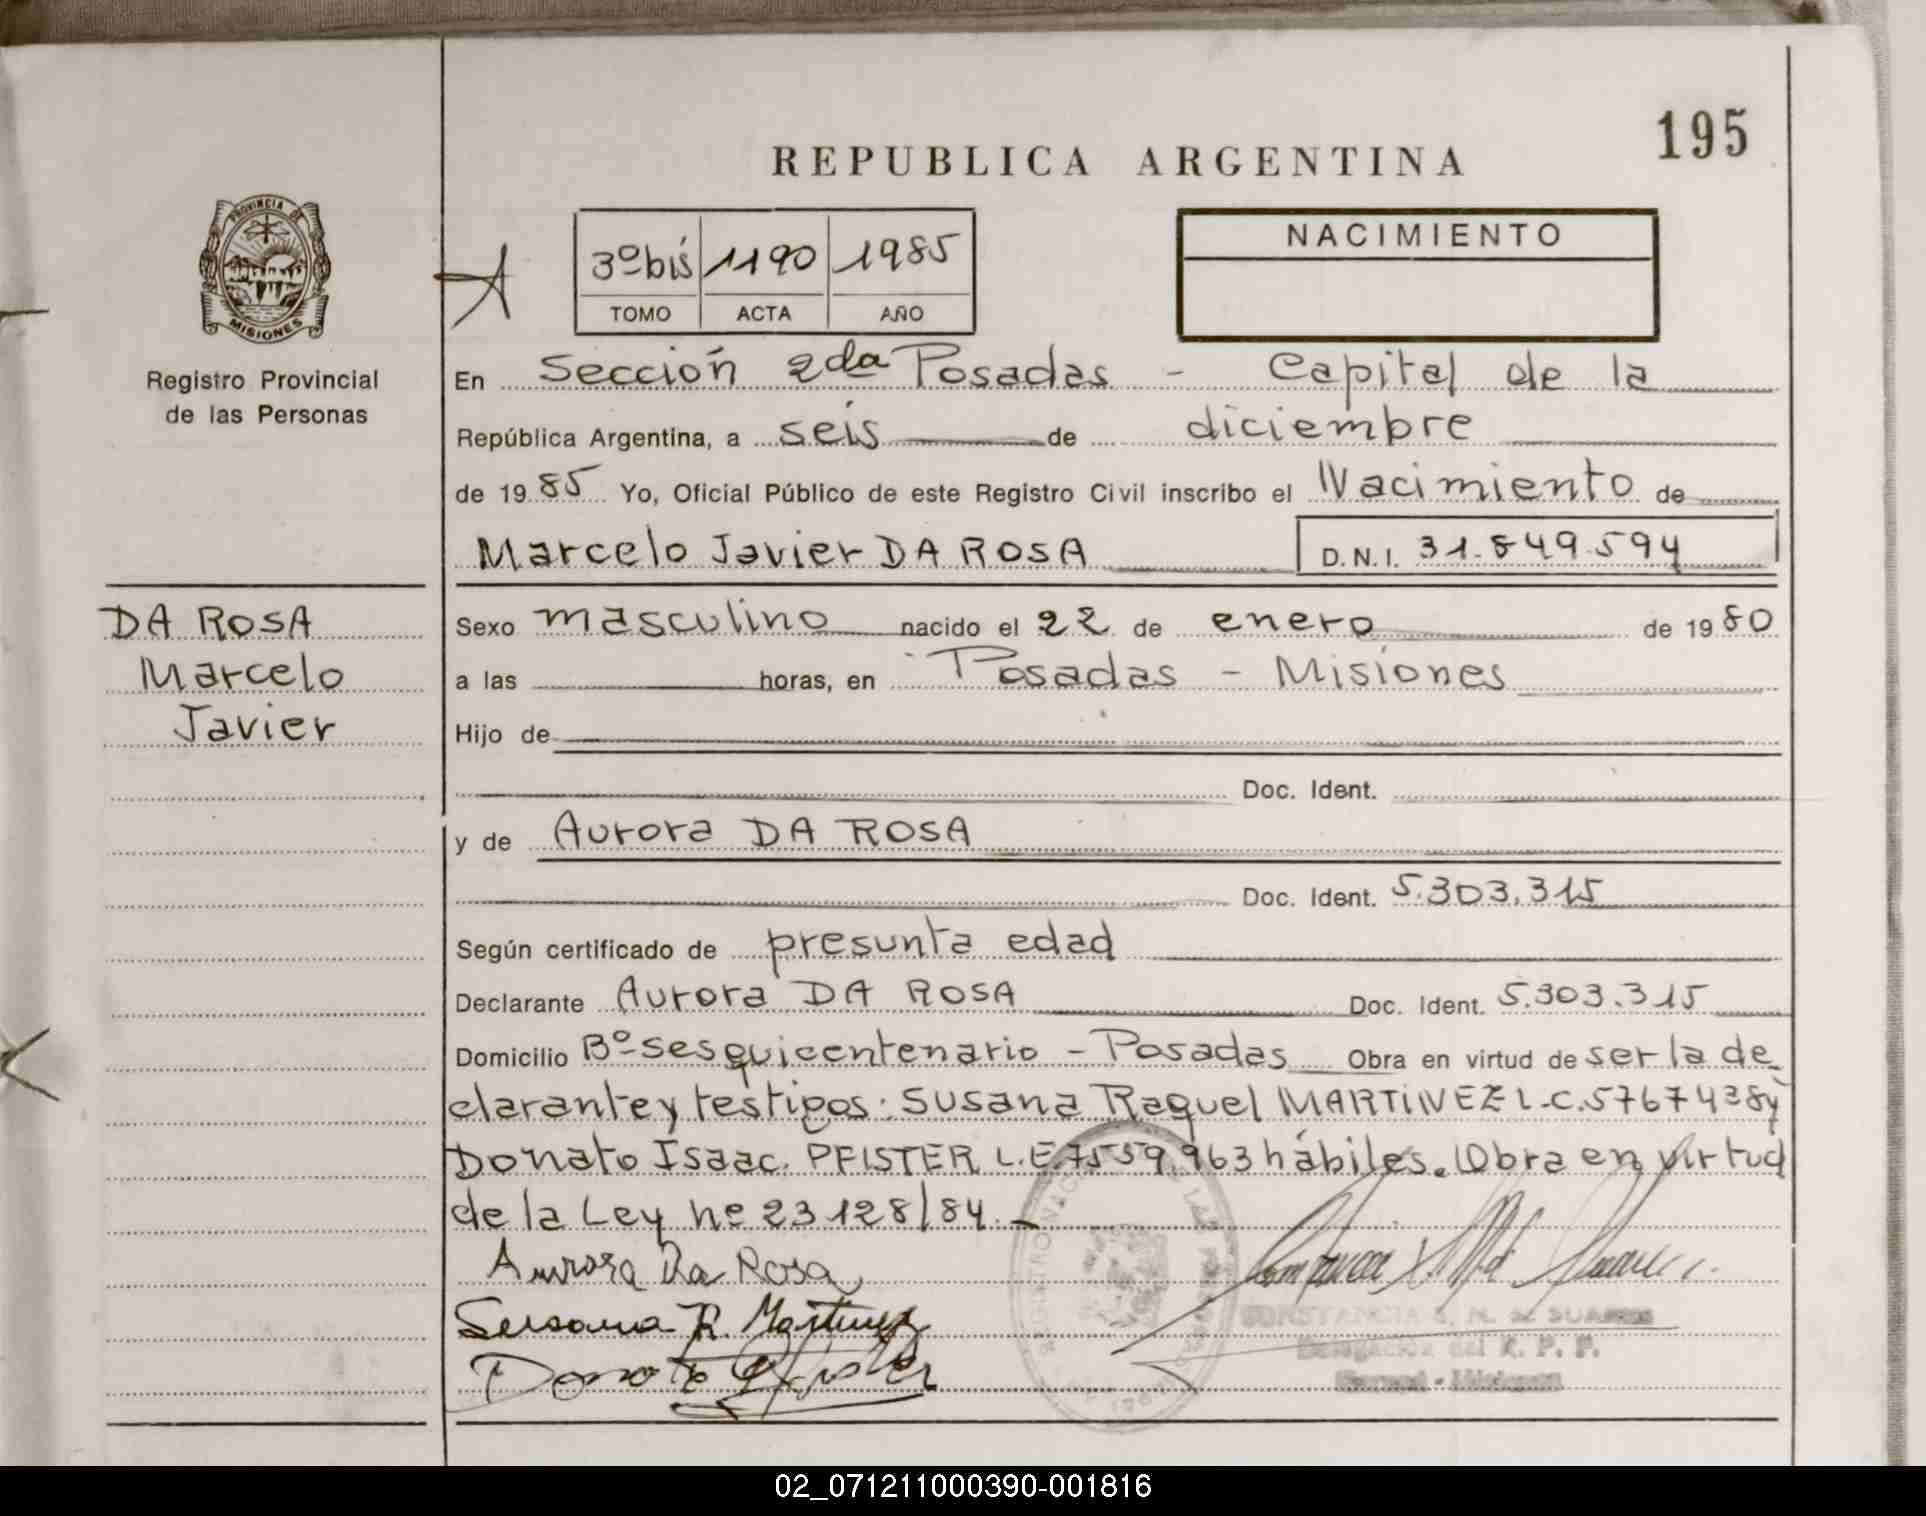 195
REPUBLICA ARGENTINA
PROVINCIA DE
MISIONES
Registro Provincial
de las Personas
A
3º bis 1190 1985
TOMO ACTA AÑO
NACIMIENTO
En Sección 2da Posadas - Capital de la
República Argentina, a seis de diciembre
de 19 85 Yo, Oficial Público de este Registro Civil inscribo el Nacimiento de
Marcelo Javier DA ROSA D.N.I. 31.849.594
DA ROSA
Marcelo
Javier
Sexo masculino nacido el 22 de enero de 19 80
a las horas, en Posadas - Misiones
Hijo de
Doc. Ident.
y de Aurora DA ROSA
Doc. Ident. 5.303.315
Según certificado de presunta edad
Declarante Aurora DA ROSA Doc. Ident. 5.303.315
Domicilio Bº Sesquicentenario - Posadas Obra en virtud de ser la de
clarante y testigos: Susana Raquel MARTINEZ L.C. 5767438 y
Donato Isaac. PFISTER L.E. 7559.963 hábiles. Obra en virtud
de la Ley nº 23128/84.-
Aurora Da Rosa
Susana R. Martinez
Donato Pfister
CONSTANCIA S. M. de SUAREZ
Delegación del R. P. P.
02_071211000390-001816